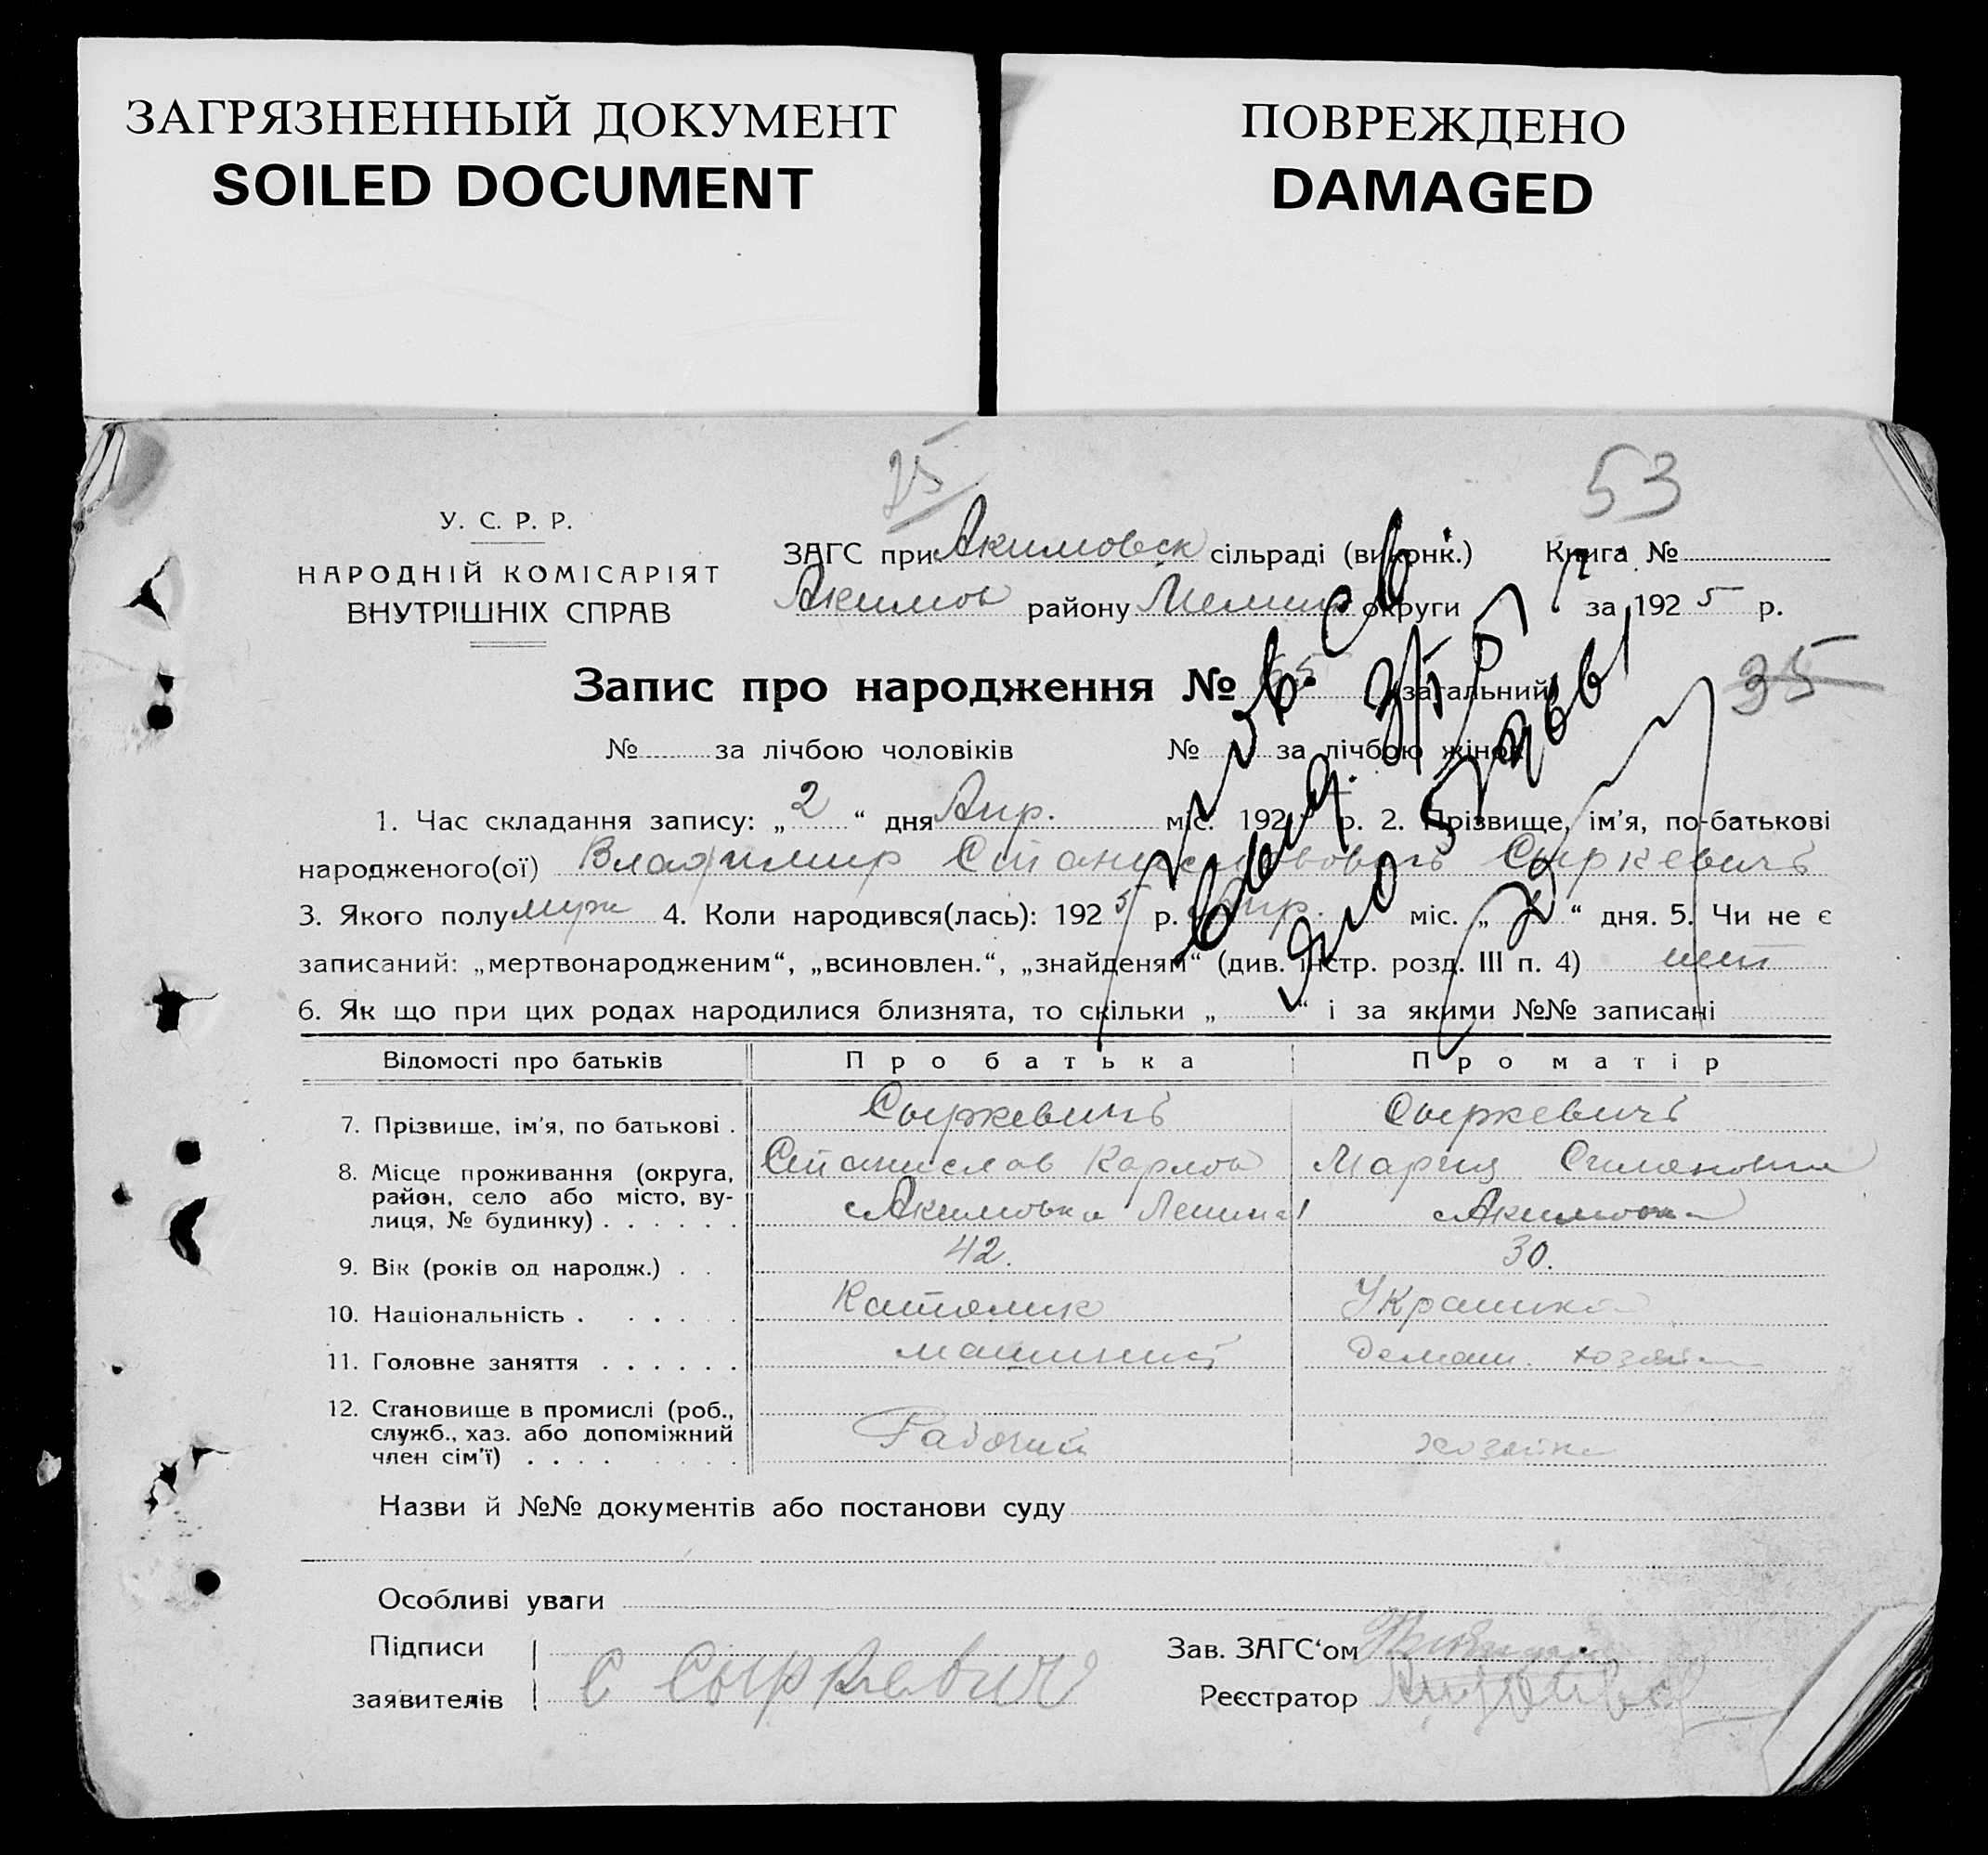 ЗАГРЯЗНЕННЫЙ ДОКУМЕНТ
SOILED DOCUMENT
ПОВРЕЖДЕНО
DAMAGED
53
У. С. Р. Р.
НАРОДНІЙ КОМІСАРІЯТ
ВНУТРІШНІХ СПРАВ
ЗАГС при Акимовск сільраді (виконк.) Книга №
Акимов району Мелит округи за 1925 р.
Запис про народження № загальний
35
№ за лічбою чоловіків № за лічбою жінок
1. Час складання запису: „2“ дня Апр. міс. 192 р. 2. Прізвище, ім'я, по-батькові
народженого(ої) Владимир Станиславович Сыркевичъ
3. Якого полу муж 4. Коли народився(лась): 1925 р. Апр. міс. „ “ дня. 5. Чи не є
записаний: „мертвонародженим“, „всиновлен.“, „знайденям“ (див. інстр. розд. III п. 4) нет
6. Як що при цих родах народилися близнята, то скільки „ “ і за якими №№ записані
Відомості про батьків Про батька Про матір
7. Прізвище, ім'я, по батькові . Сыркевичъ Сыркевичъ
Станислав Карлов Мария Симоновна
8. Місце проживання (округа,
район, село або місто, ву-
лиця, № будинку) . . . . . . Акимовка Ленина Акимовка
9. Вік (років од народж.) . . 42. 30.
10. Національність . . . . . Католик Украинка
11. Головне заняття . . . . . . машинист домаш. хозяйка
12. Становище в промислі (роб.,
служб., хаз. або допоміжний
член сім'ї) . . . . . . . . Рабочий хозяйка
Назви й №№ документів або постанови суду
Особливі уваги
Підписи
заявителів С Сыркевич
Зав. ЗАГС'ом
Реєстратор